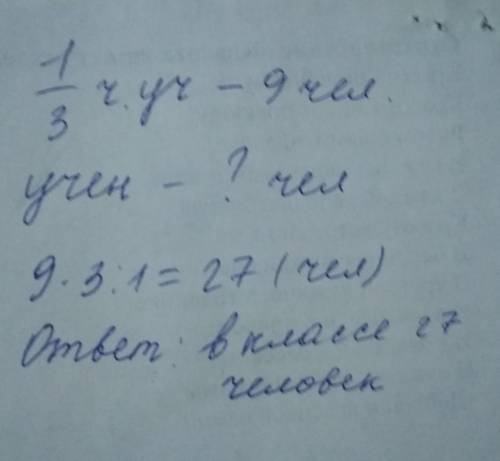 1/3 ч. уч – 9 чел.
учен – ? чел
9·3:1=27 (чел)
Ответ: в классе 27
человек